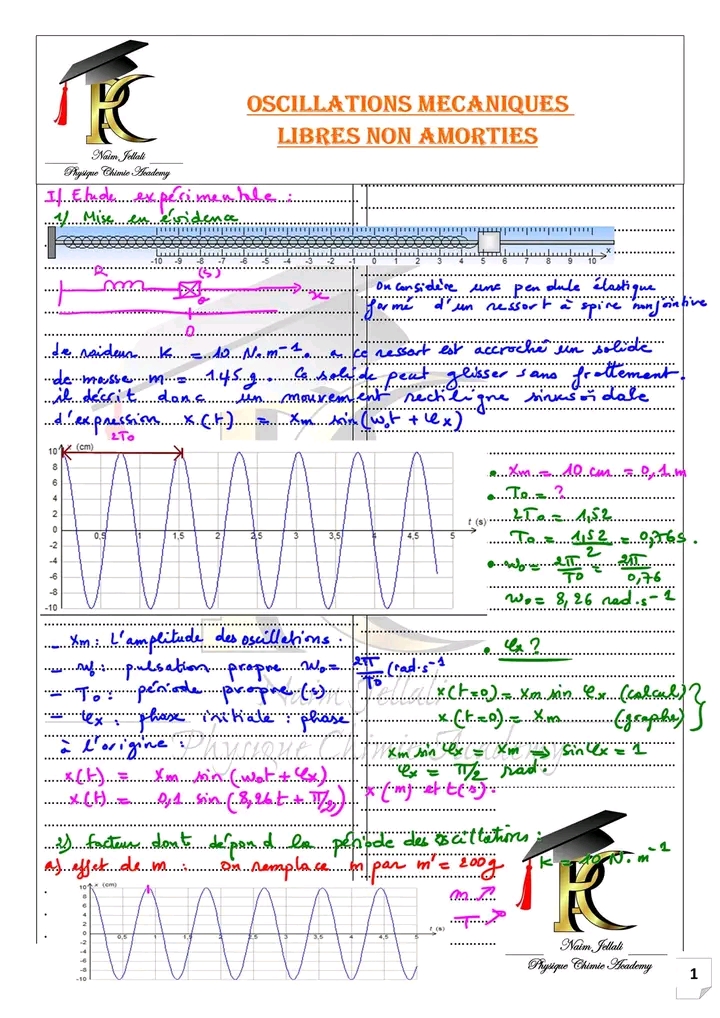 OSCILLATIONS MECANIQUES
LIBRES NON AMORTIES
Naim Jellali
Physique Chimie Academy
I/ Etude expérimentale :
1/ Mise en évidence
-10 -9 -8 -7 -6 -5 -4 -3 -2 -1 0 1 2 3 4 5 6 7 8 9 10 x
R (S)
x
O
On considère une pendule élastique
formé d'un ressort à spire non jointive
de raideur K = 10 N.m⁻¹. a ce ressort est accroché un solide
de masse m = 145 g. Ce solide peut glisser sans frottement.
il décrit donc un mouvement rectiligne sinusoïdale
d'expression x(t) = Xm sin(ω₀t + φx)
2T₀
x (cm)
10
8
6
4
2
0
-2
-4
-6
-8
-10
0,5 1 1,5 2 2,5 3 3,5 4 4,5 5
t (s)
• Xm = 10 cm = 0,1 m
• T₀ = ?
2T₀ = 1,52
T₀ = 1,52/2 = 0,76 s.
• ω₀ = 2π/T₀ = 2π/0,76
ω₀ = 8,26 rad.s⁻¹
• φx ?
x(t=0) = Xm sin φx (calcul)
x(t=0) = Xm (graphe)
Xm sin φx = Xm ⇒ sin φx = 1
φx = π/2 rad.
- Xm : L'amplitude des oscillations.
- ω₀ : pulsation propre ω₀ = 2π/T₀ (rad.s⁻¹
- T₀ : période propre (s)
- φx : phase initiale : phase
à l'origine :
x(t) = Xm sin(ω₀t + φx)
x(t) = 0,1 sin(8,26t + π/2) x(m) et t(s).
Naim Jellali
Physique Chimie Academy
2/ facteur dont dépend la période des oscillations :
a) effet de m : on remplace m par m' = 200g
K = 10 N.m⁻¹
x (cm)
10
8
6
4
2
0
-2
-4
-6
-8
-10
0,5 1 1,5 2 2,5 3 3,5 4 4,5 5
t (s)
m ↗
T ↗
Naim Jellali
Physique Chimie Academy
1